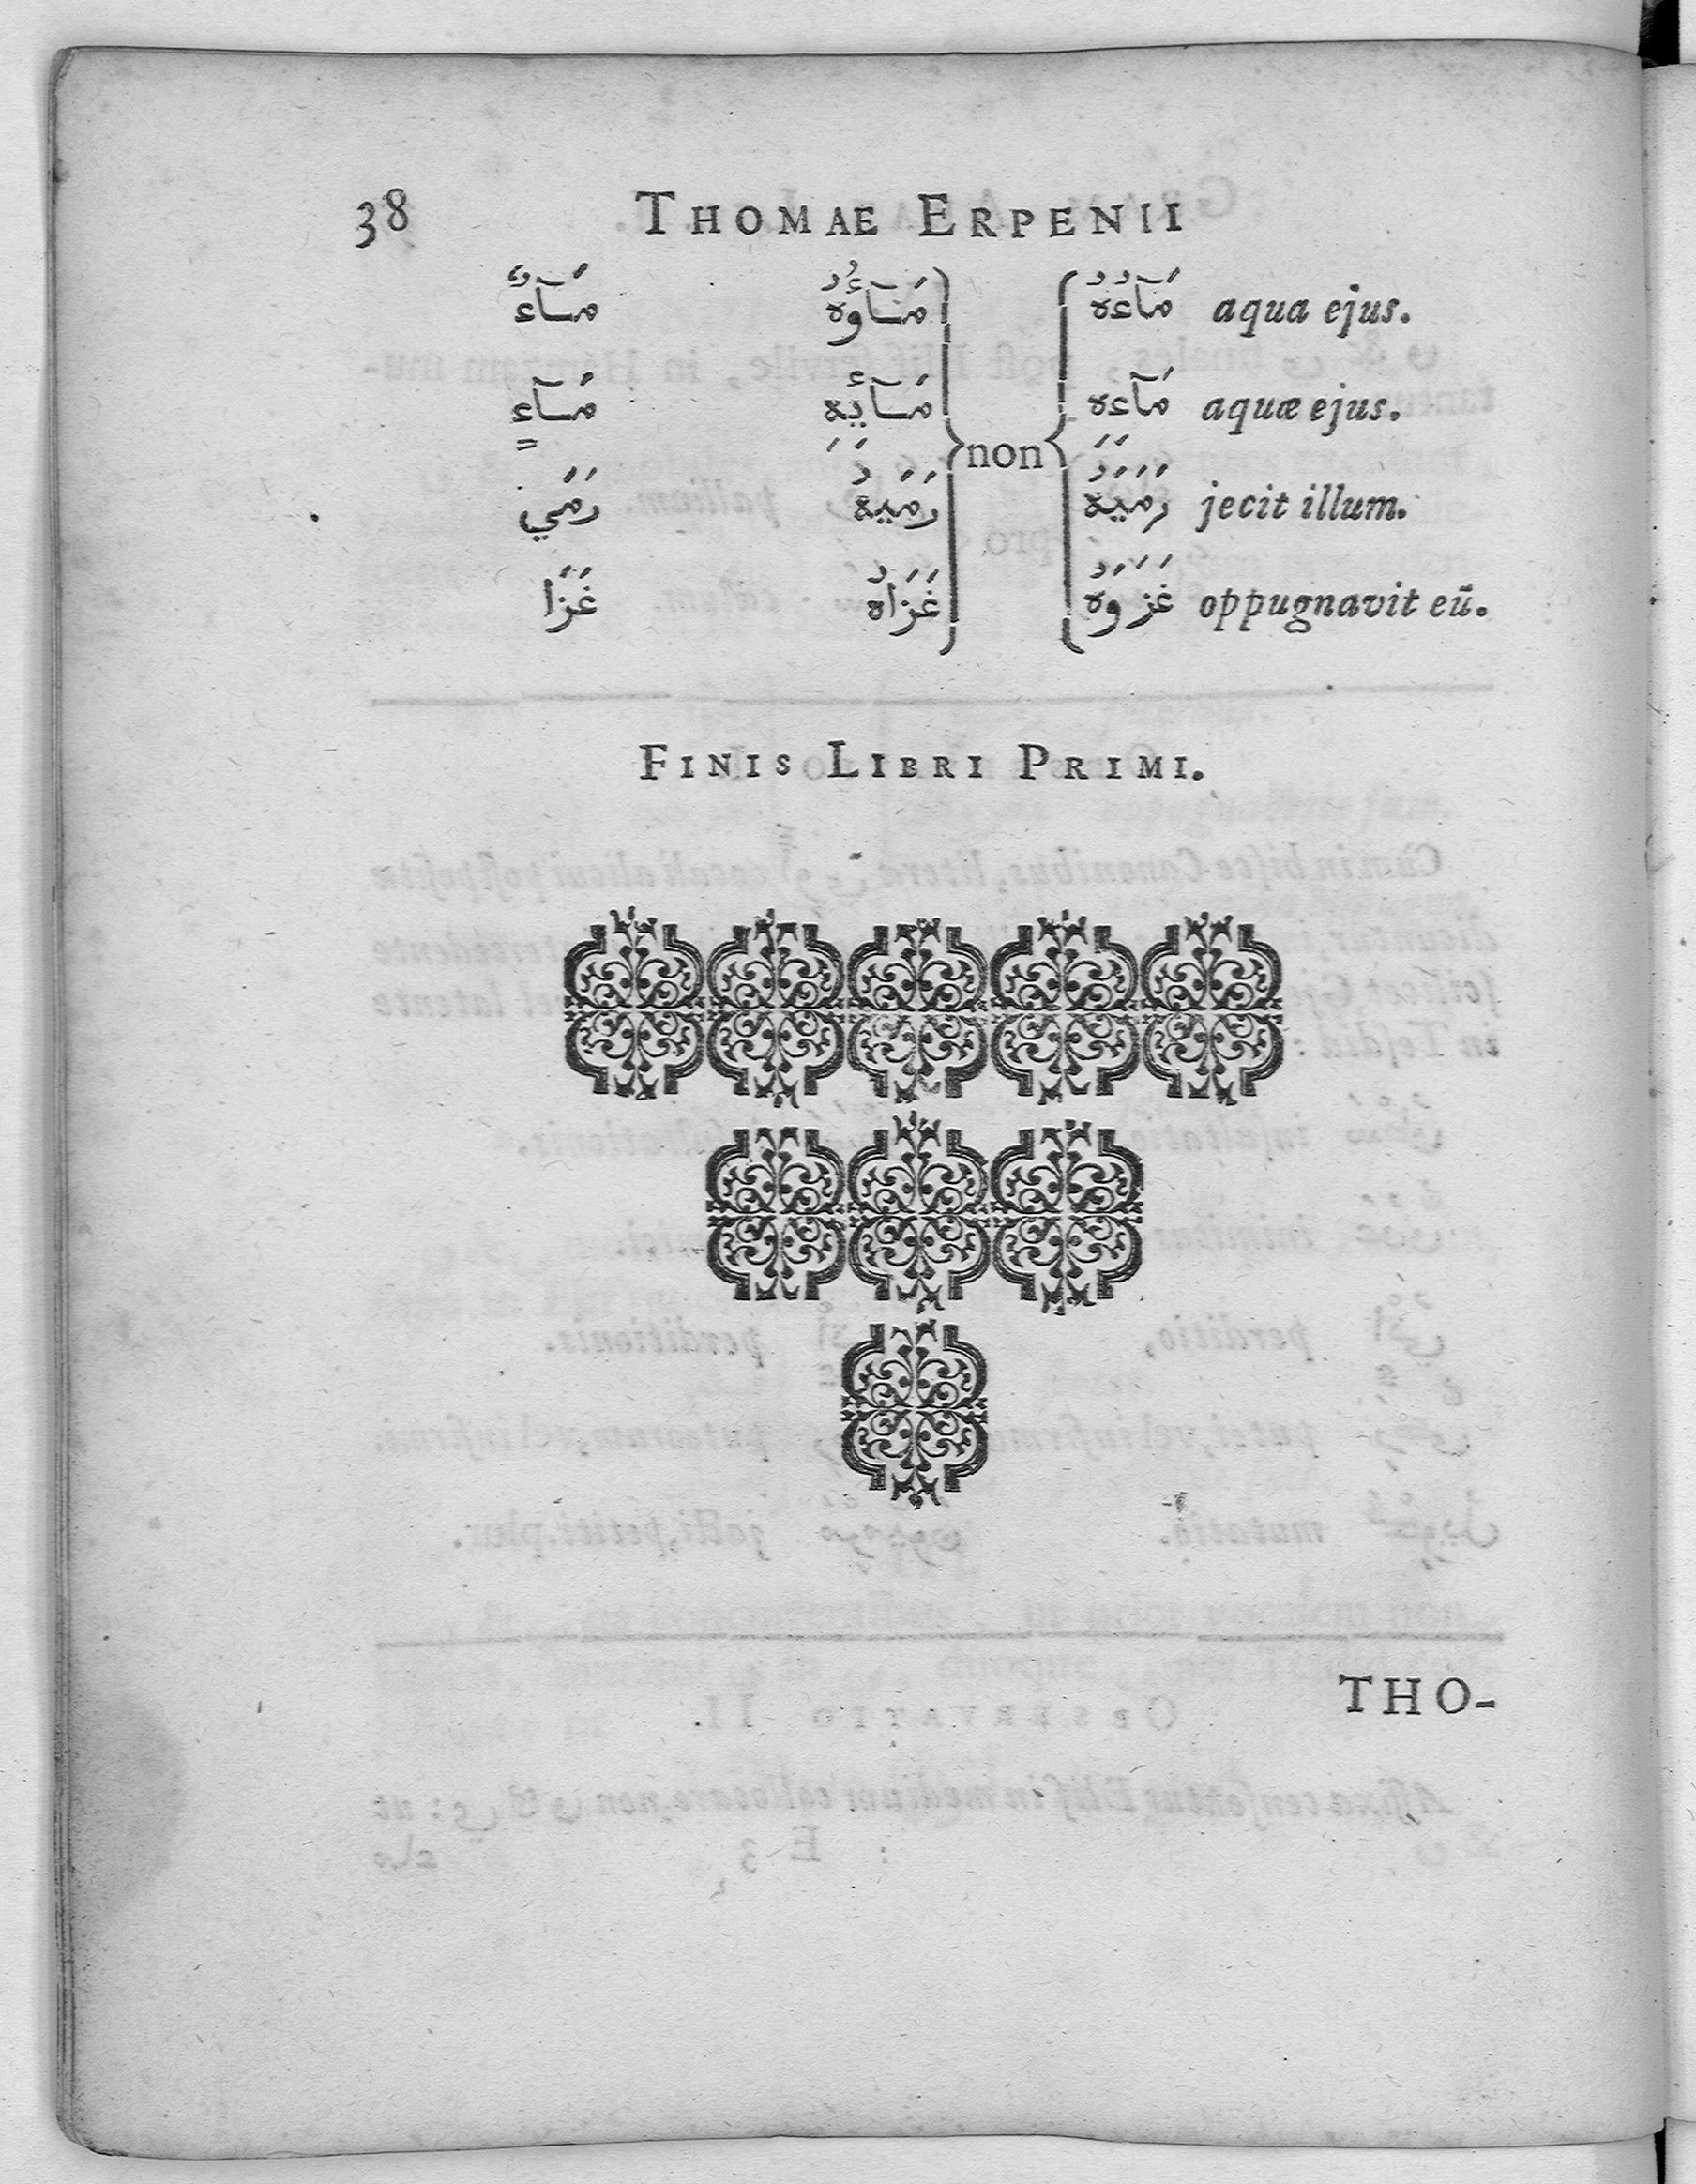 38 THOMAE ERPENII
مَآءٌ مَآؤُهُ non مَآءُهُ aqua ejus.
مَآءٍ مَآئِهِ مَآءِهِ aquæ ejus.
رَمَي رَمَيهُ رَمَيَهُ jecit illum.
غَزَا غَزَاهُ غَزَوَهُ oppugnavit eū.
FINIS LIBRI PRIMI.
THO-